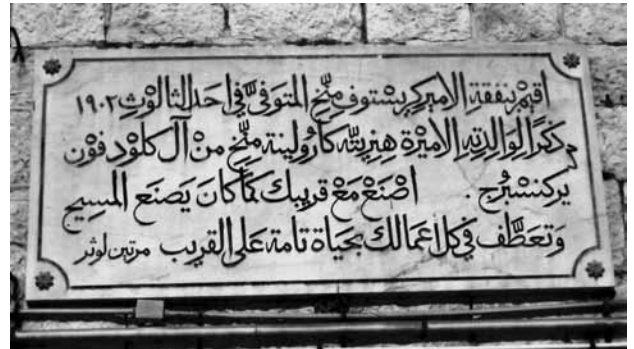 اقيم بنفقة الامير كريستوف منّخ المتوفى في احد الثالوث ١٩٠٢
ذكرًا لوالدته الاميرة هنريتّه كارولينة منّخ من آل كلود فون
يركنسبرج . اصْنَعْ مَعْ قريبك كَمَا كانَ يَصنَع المسيح
وَتعَطَّف في كل اعمَالك بحَيَاة تامَة عَلى القريب مرتين لوثر